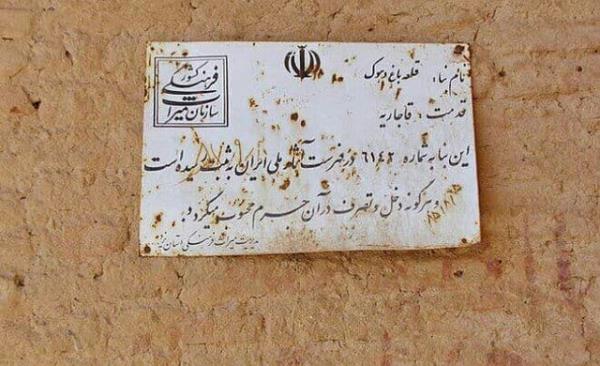 سازمان میراث فرهنگی کشور
نام بنا: قلعه باغ دهوک
قدمت: قاجاریه
این بنا به شماره ۶۱۴۲ در فهرست آثار ملی ایران به ثبت رسیده است
و هرگونه دخل و تصرف در آن جرم محسوب میگردد.
مدیریت میراث فرهنگی استان یزد